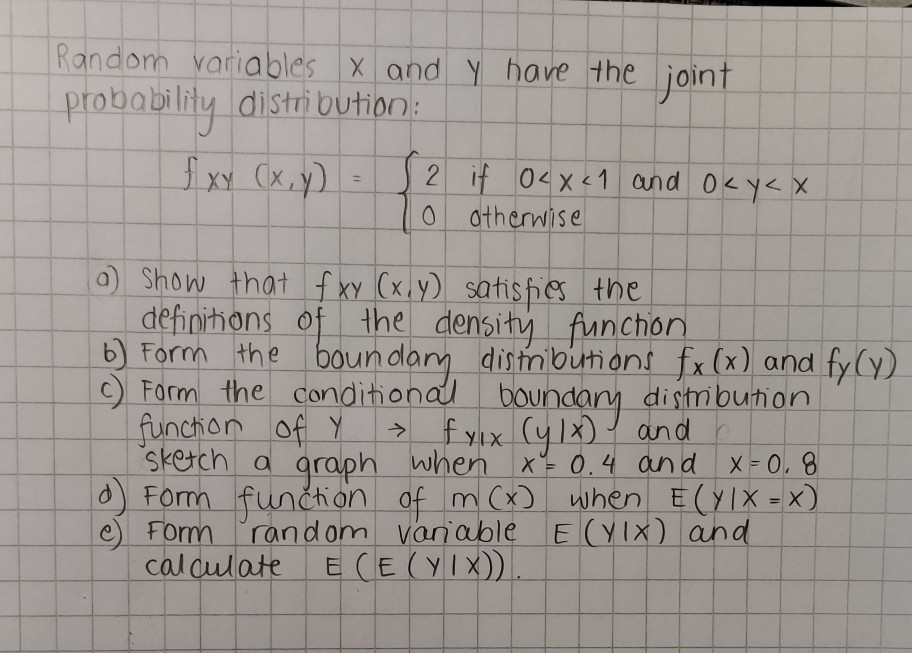 Random variables X and Y have the joint
probability distribution:
f XY (x,y) = { 2 if 0<x<1 and 0<y<x
0 otherwise
a) Show that f XY (x,y) satisfies the
definitions of the density function
b) Form the boundary distributions fx(x) and fy(y)
c) Form the conditional boundary distribution
function of Y → f Y|X (y|x) and
sketch a graph when x = 0.4 and x = 0.8
d) Form function of m(x) when E(Y|X=x)
e) Form random variable E(Y|X) and
calculate E(E(Y|X)).